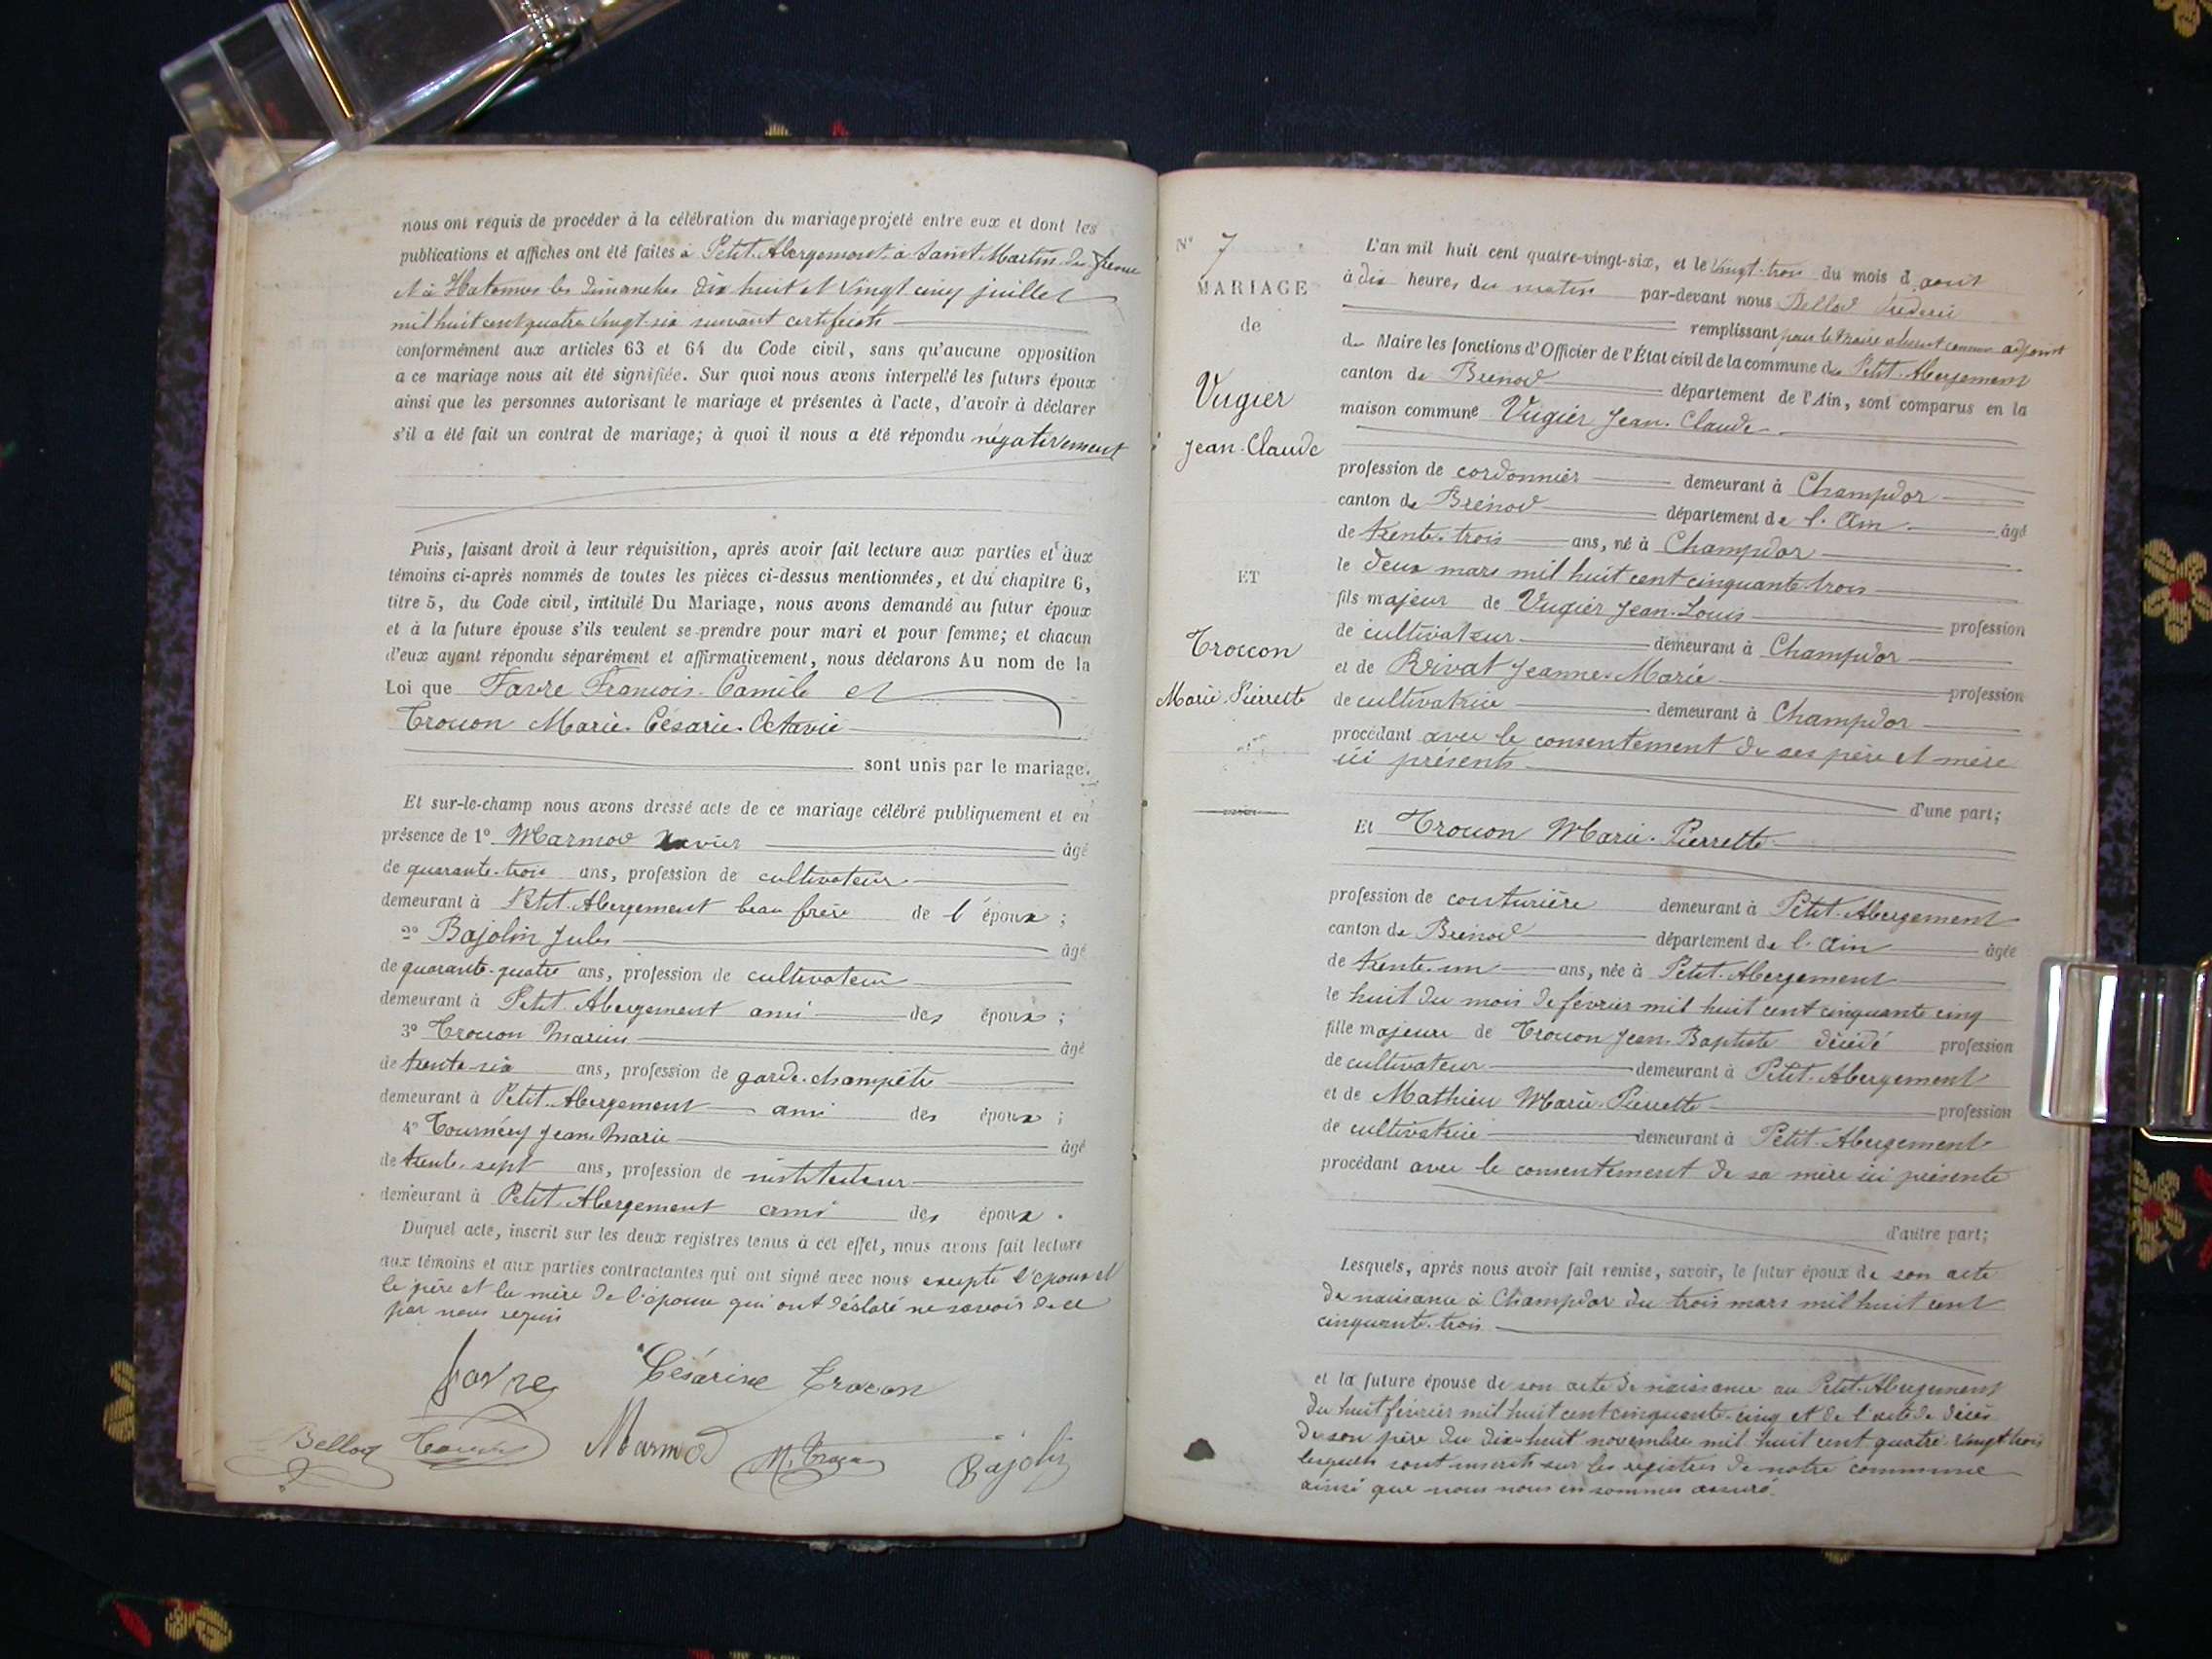 nous ont requis de procéder à la célébration du mariage projeté entre eux et dont les
publications et affiches ont été faites à Petit-Abergement à Saint Martin du fresne
et à Hotonnes les dimanches dix huit et vingt cinq juillet
mil huit cent quatre vingt-six suivant certificats
conformément aux articles 63 et 64 du Code civil, sans qu'aucune opposition
a ce mariage nous ait été signifiée. Sur quoi nous avons interpellé les futurs époux
ainsi que les personnes autorisant le mariage et présentes à l'acte, d'avoir à déclarer
s'il a été fait un contrat de mariage; à quoi il nous a été répondu négativement
Puis, faisant droit à leur réquisition, après avoir fait lecture aux parties et aux
témoins ci-après nommés de toutes les pièces ci-dessus mentionnées, et du chapitre 6,
titre 5, du Code civil, intitulé Du Mariage, nous avons demandé au futur époux
et à la future épouse s'ils veulent se prendre pour mari et pour femme; et chacun
d'eux ayant répondu séparément et affirmativement, nous déclarons Au nom de la
Loi que Favre François-Camile et
Troccon Marie-Césarie-Octavie
sont unis par le mariage.
Et sur-le-champ nous avons dressé acte de ce mariage célébré publiquement et en
présence de 1º Marmod Xavier âgé
de quarante-trois ans, profession de cultivateur
demeurant à Petit-Abergement beau frère de l'époux ;
2º Bajolin Jules âgé
de quarante-quatre ans, profession de cultivateur
demeurant à Petit-Abergement ami des époux ;
3º Troccon Marius âgé
de trente-six ans, profession de garde-champête
demeurant à Petit-Abergement ami des époux ;
4º Tournéry Jean-Marie âgé
de trente-sept ans, profession de instituteur
demeurant à Petit-Abergement ami des époux.
Duquel acte, inscrit sur les deux registres tenus à cet effet, nous avons fait lecture
aux témoins et aux parties contractantes qui ont signé avec nous excepté l'époux et
le père et la mère de l'épouse qui ont déclaré ne savoir de ce
par nous requis
favre Césarine Trocon
Bellod Marmod M. Trocon Bajolin
Nº 7
MARIAGE
de
Vugier
Jean-Claude
ET
Troccon
Marie-Pierrette
L'an mil huit cent quatre-vingt-six, et le vingt-trois du mois d'août
à dix heures du matin par-devant nous Bellod Frédéric
remplissant pour le Maire absent comme adjoint
de Maire les fonctions d'Officier de l'État civil de la commune de Petit-Abergement
canton de Brénod département de l'Ain, sont comparus en la
maison commune Vugier Jean-Claude
profession de cordonnier demeurant à Champdor
canton de Brénod département de l'Ain âgé
de trente-trois ans, né à Champdor
le deux mars mil huit cent cinquante-trois
fils majeur de Vugier Jean-Louis profession
de cultivateur demeurant à Champdor
et de Rivat Jeanne-Marie profession
de cultivatrice demeurant à Champdor
procédant avec le consentement de ses père et mère
ici présents
d'une part;
Et Troccon Marie-Pierrette
profession de couturière demeurant à Petit-Abergement
canton de Brénod département de l'Ain âgée
de trente-un ans, née à Petit-Abergement
le huit du mois de février mil huit cent cinquante cinq
fille majeure de Troccon Jean-Baptiste décédé profession
de cultivateur demeurant à Petit-Abergement
et de Mathieu Marie-Pierrette profession
de cultivatrice demeurant à Petit-Abergement
procédant avec le consentement de sa mère ici présente
d'autre part;
Lesquels, après nous avoir fait remise, savoir, le futur époux de son acte
de naissance à Champdor du trois mars mil huit cent
cinquante-trois
et la future épouse de son acte de naissance au Petit-Abergement
du huit février mil huit cent cinquante-cinq et de l'acte de décès
de son père du dix-huit novembre mil huit cent quatre vingt trois
lesquels sont inscrits sur les registres de notre commune
ainsi que nous nous en sommes assuré.